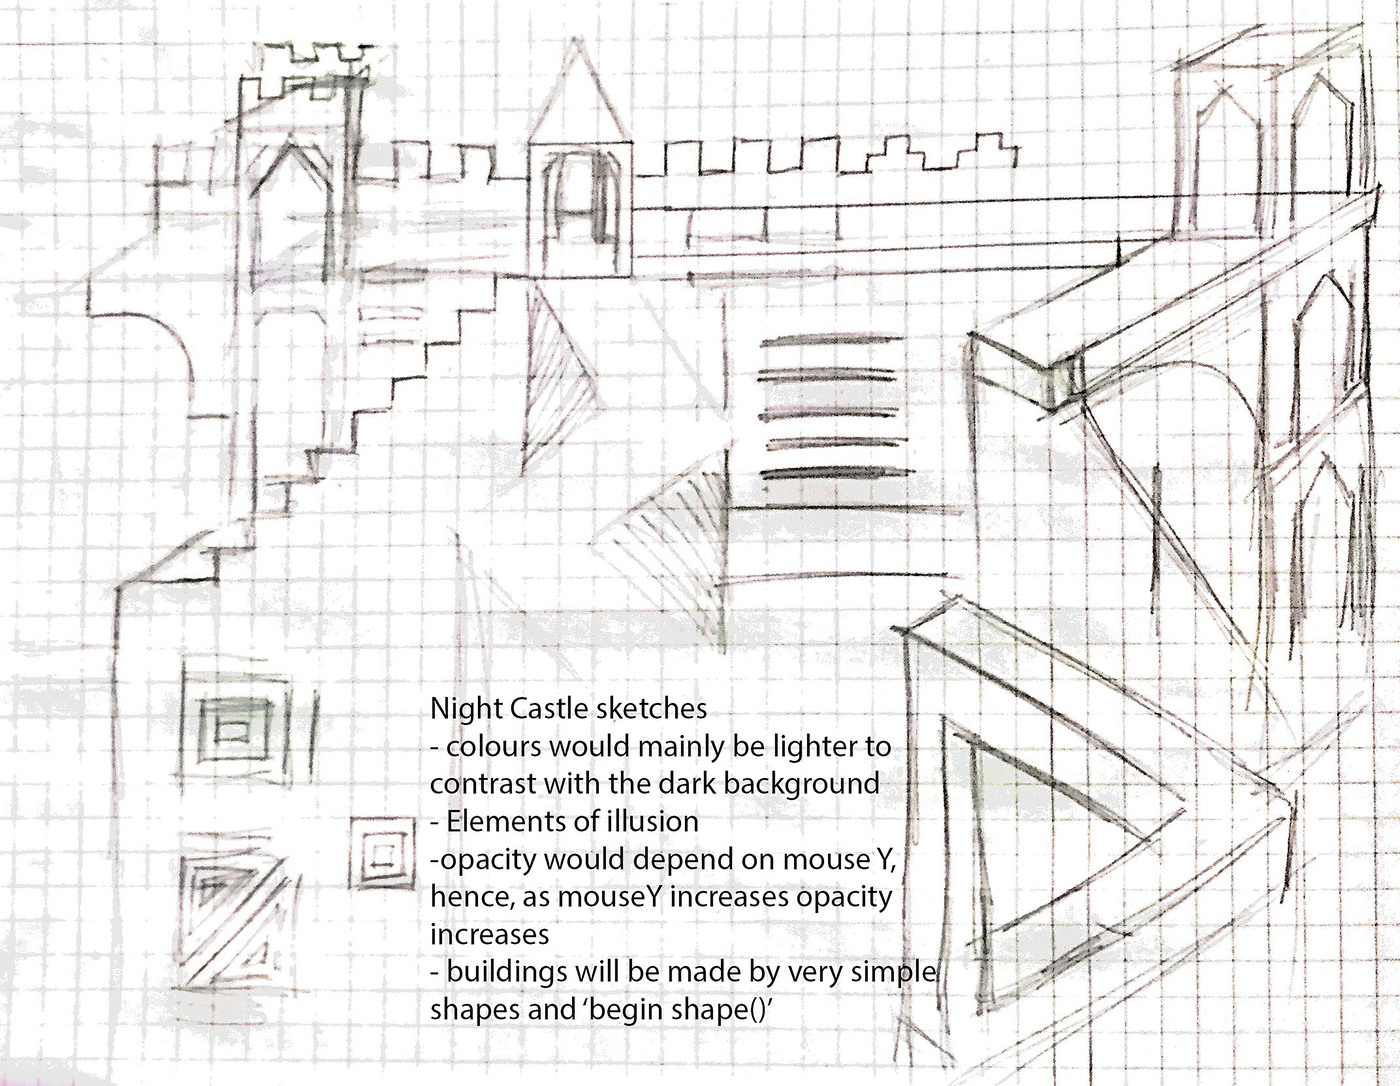 Night Castle sketches
- colours would mainly be lighter to
contrast with the dark background
- Elements of illusion
-opacity would depend on mouse Y,
hence, as mouseY increases opacity
increases
- buildings will be made by very simple
shapes and ‘begin shape()’